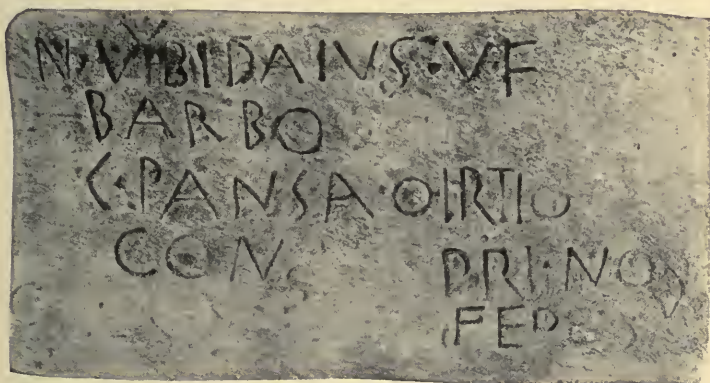 N·VIBIDAIVS·V·F
BARBO
C·PANSA·OHIRTIO
CONS PRI·NO
FEB